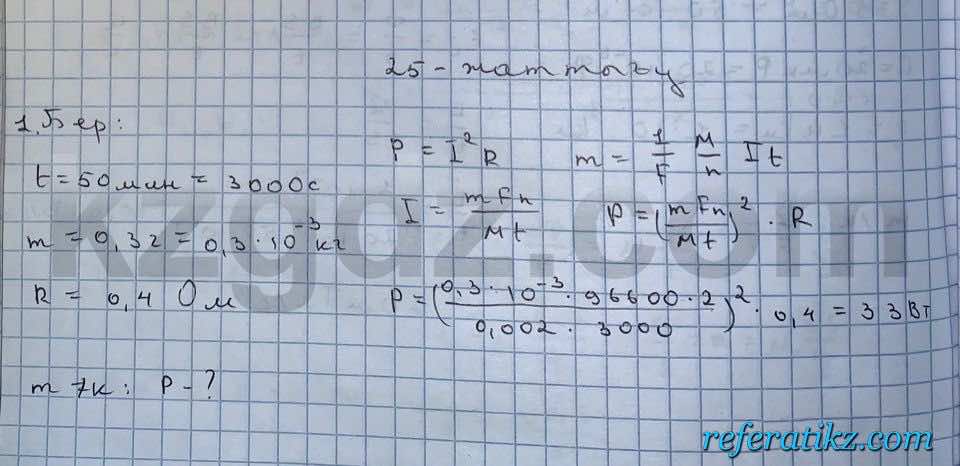 25-жаттығу
1. Бер:
t = 50мин = 3000с
m = 0,3г = 0,3·10⁻³кг
R = 0,4 Ом
m/к: P-?
P = I²R
m = 1/F M/n It
I = mFn/Mt
P = (mFn/Mt)² · R
P = (0,3·10⁻³·96600·2/0,002·3000)² · 0,4 = 33Вт
kzgdz.com
referatikz.com